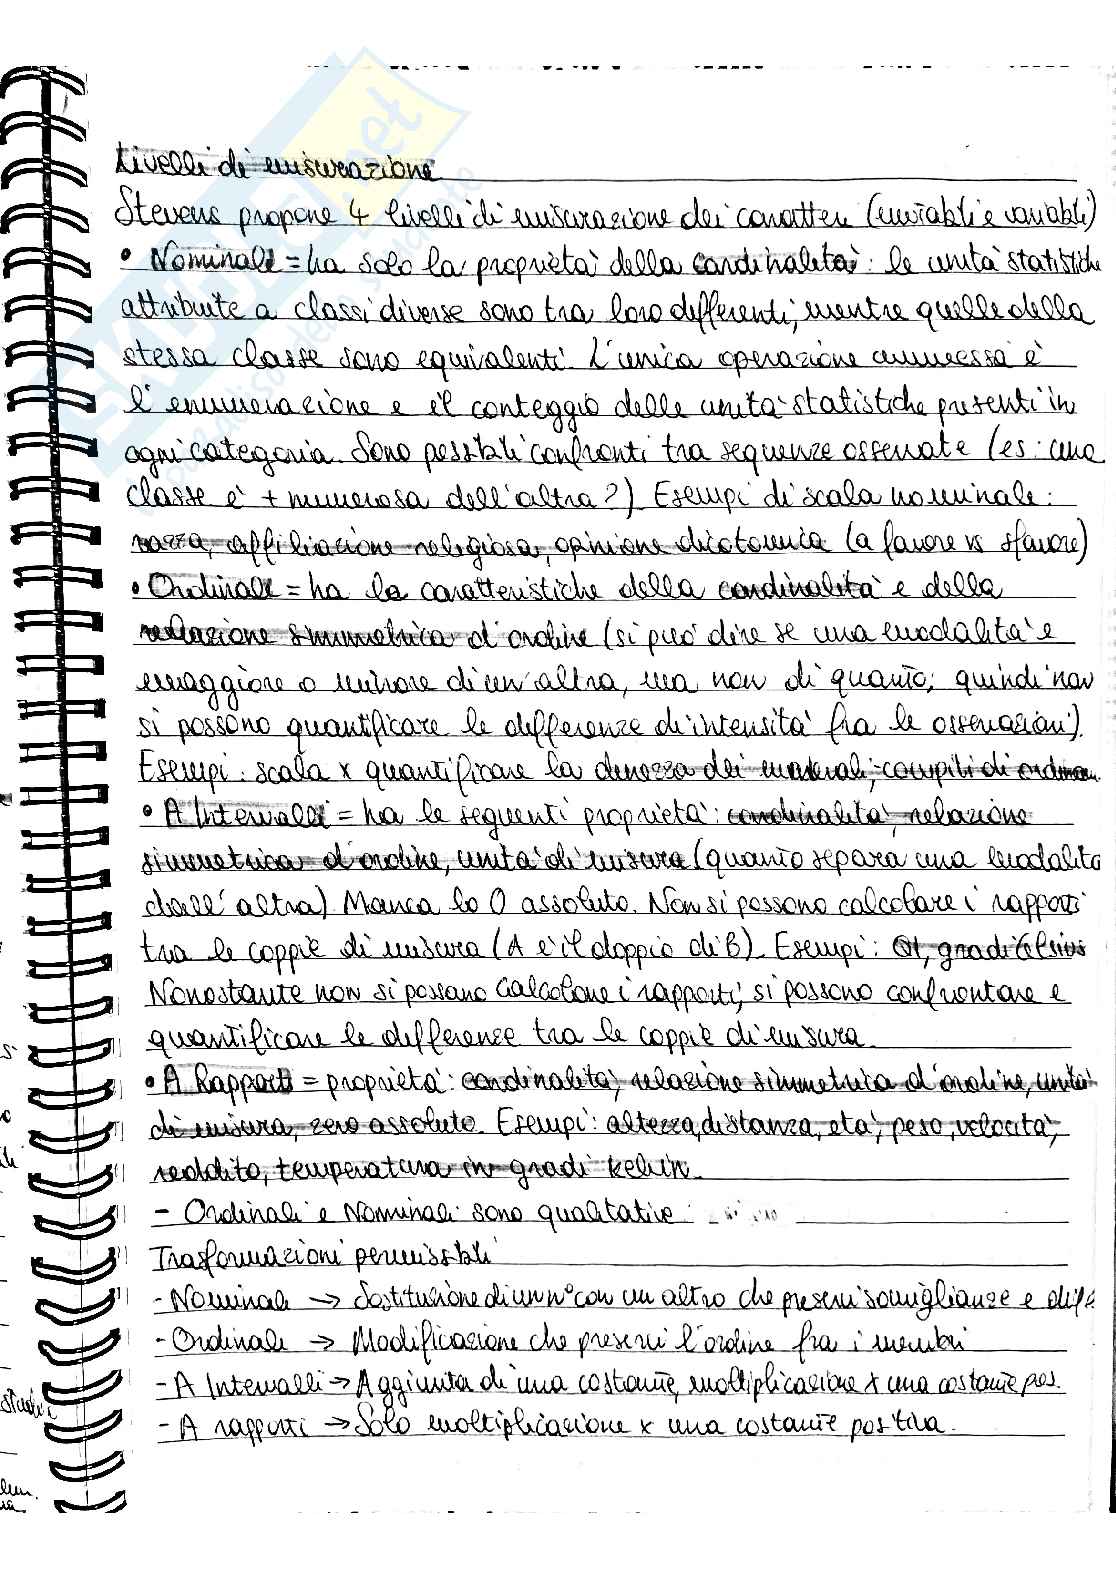 Livelli di misurazione
Stevens propone 4 livelli di misurazione dei caratteri (mutabili e variabili)
• Nominale = ha solo la proprietà della cardinalità: le unità statistiche
attribuite a classi diverse sono tra loro differenti, mentre quelle della
stessa classe sono equivalenti. L'unica operazione ammessa è
l'enumerazione e il conteggio delle unità statistiche presenti in
ogni categoria. Sono possibili confronti tra sequenze osservate (es: una
classe è + numerosa dell'altra?) Esempi di scala nominale:
razza, affiliazione religiosa, opinione dicotomica (a favore vs sfavore)
• Ordinale = ha le caratteristiche della cardinalità e della
relazione simmetrica d'ordine (si può dire se una modalità è
maggiore o minore di un'altra, ma non di quanto; quindi non
si possono quantificare le differenze di intensità fra le osservazioni).
Esempi: scala x quantificare la durezza dei materiali, compiti di ordinam.
• A Intervalli = ha le seguenti proprietà: cardinalità, relazione
simmetrica d'ordine, unità di misura (quanto separa una modalità
dall'altra) Manca lo 0 assoluto. Non si possono calcolare i rapporti
tra le coppie di misura (A è il doppio di B). Esempi: QI, gradi Celsius
Nonostante non si possano calcolare i rapporti, si possono confrontare e
quantificare le differenze tra le coppie di misura.
• A Rapporti = proprietà: cardinalità, relazione simmetrica d'ordine, unità
di misura, zero assoluto. Esempi: altezza, distanza, età, peso, velocità,
reddito, temperatura in gradi kelvin.
- Ordinali e Nominali sono qualitative
Trasformazioni permissibili
- Nominali → Sostituzione di un n° con un altro che preservi somiglianze e diff.
- Ordinale → Modificazione che preservi l'ordine fra i membri
- A Intervalli → Aggiunta di una costante, moltiplicazione x una costante pos.
- A rapporti → Solo moltiplicazione x una costante positiva.